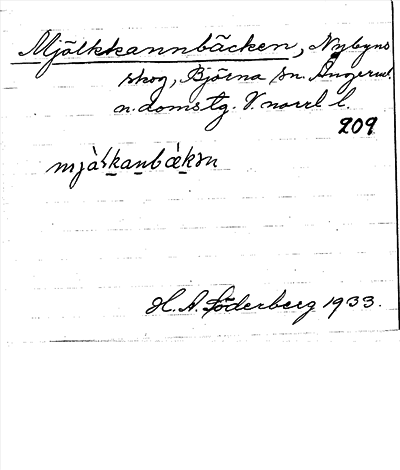 Mjölkkannbäcken, Nybyns
skog, Björna sn. Ångerml.
n. domstg. V. norrl l.
209
mjàlkanbǽkən
H. A. Söderberg 1933.